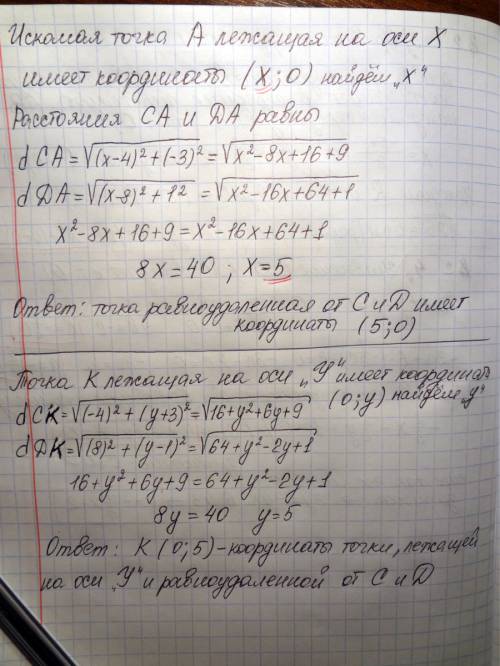 Искомая точка А лежащая на оси X
имеет координаты (X;0) найдём „X"
Расстояния СА и DA равны
d CA = √(x-4)²+(-3)² = √x²-8x+16+9
d DA = √(x-8)²+12 = √x²-16x+64+1
x²-8x+16+9 = x²-16x+64+1
8x = 40 ; x = 5
Ответ: точка равноудаленная от С и D имеет
координаты (5;0)
Точка К лежащая на оси „У" имеет координат
(0;y) найдём „y"
d CK = √(-4)²+(y+3)² = √16+y²+6y+9
d DK = √(8)²+(y-1)² = √64+y²-2y+1
16+y²+6y+9 = 64+y²-2y+1
8y = 40 y = 5
Ответ: К (0;5) - координаты точки, лежащей
на оси „У" и равноудаленной от С и D